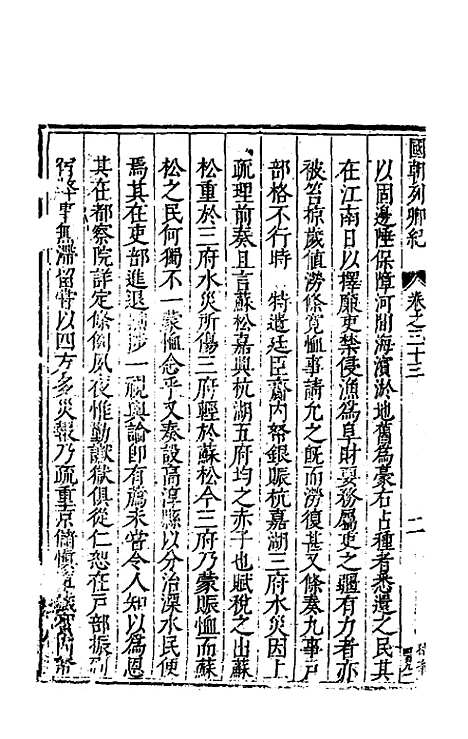 國朝列卿紀 卷之三十三 二
以固邊陲保障河間海濱淤地舊為豪右占種者悉還之民其
在江南日以擇廉吏禁侵漁為阜財要務屬吏之彊有力者亦
被笞掠歲值澇條寬恤事請允之旣而澇復甚又條奏九事戸
部格不行時 特遣廷臣齎內帑銀賑杭嘉湖三府水災因上
疏理前奏且言蘇松嘉興杭湖五府均之赤子也賦稅之出蘇
松重於三府水災所傷三府輕於蘇松今三府乃蒙賑恤而蘇
松之民何獨不一蒙恤念乎又奏設高淳縣以分治溧水民便
焉其在吏部進退 一視輿論即有薦未嘗令人知以為恩
其在都察院詳定條例夙夜惟勤讞獄俱從仁恕在戸部振刷
事無滯留嘗以四方多災報乃疏重京儲慎